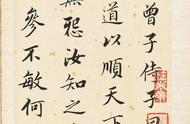 曾子侍子曰
道以順天下
無怨汝知之
參不敏何